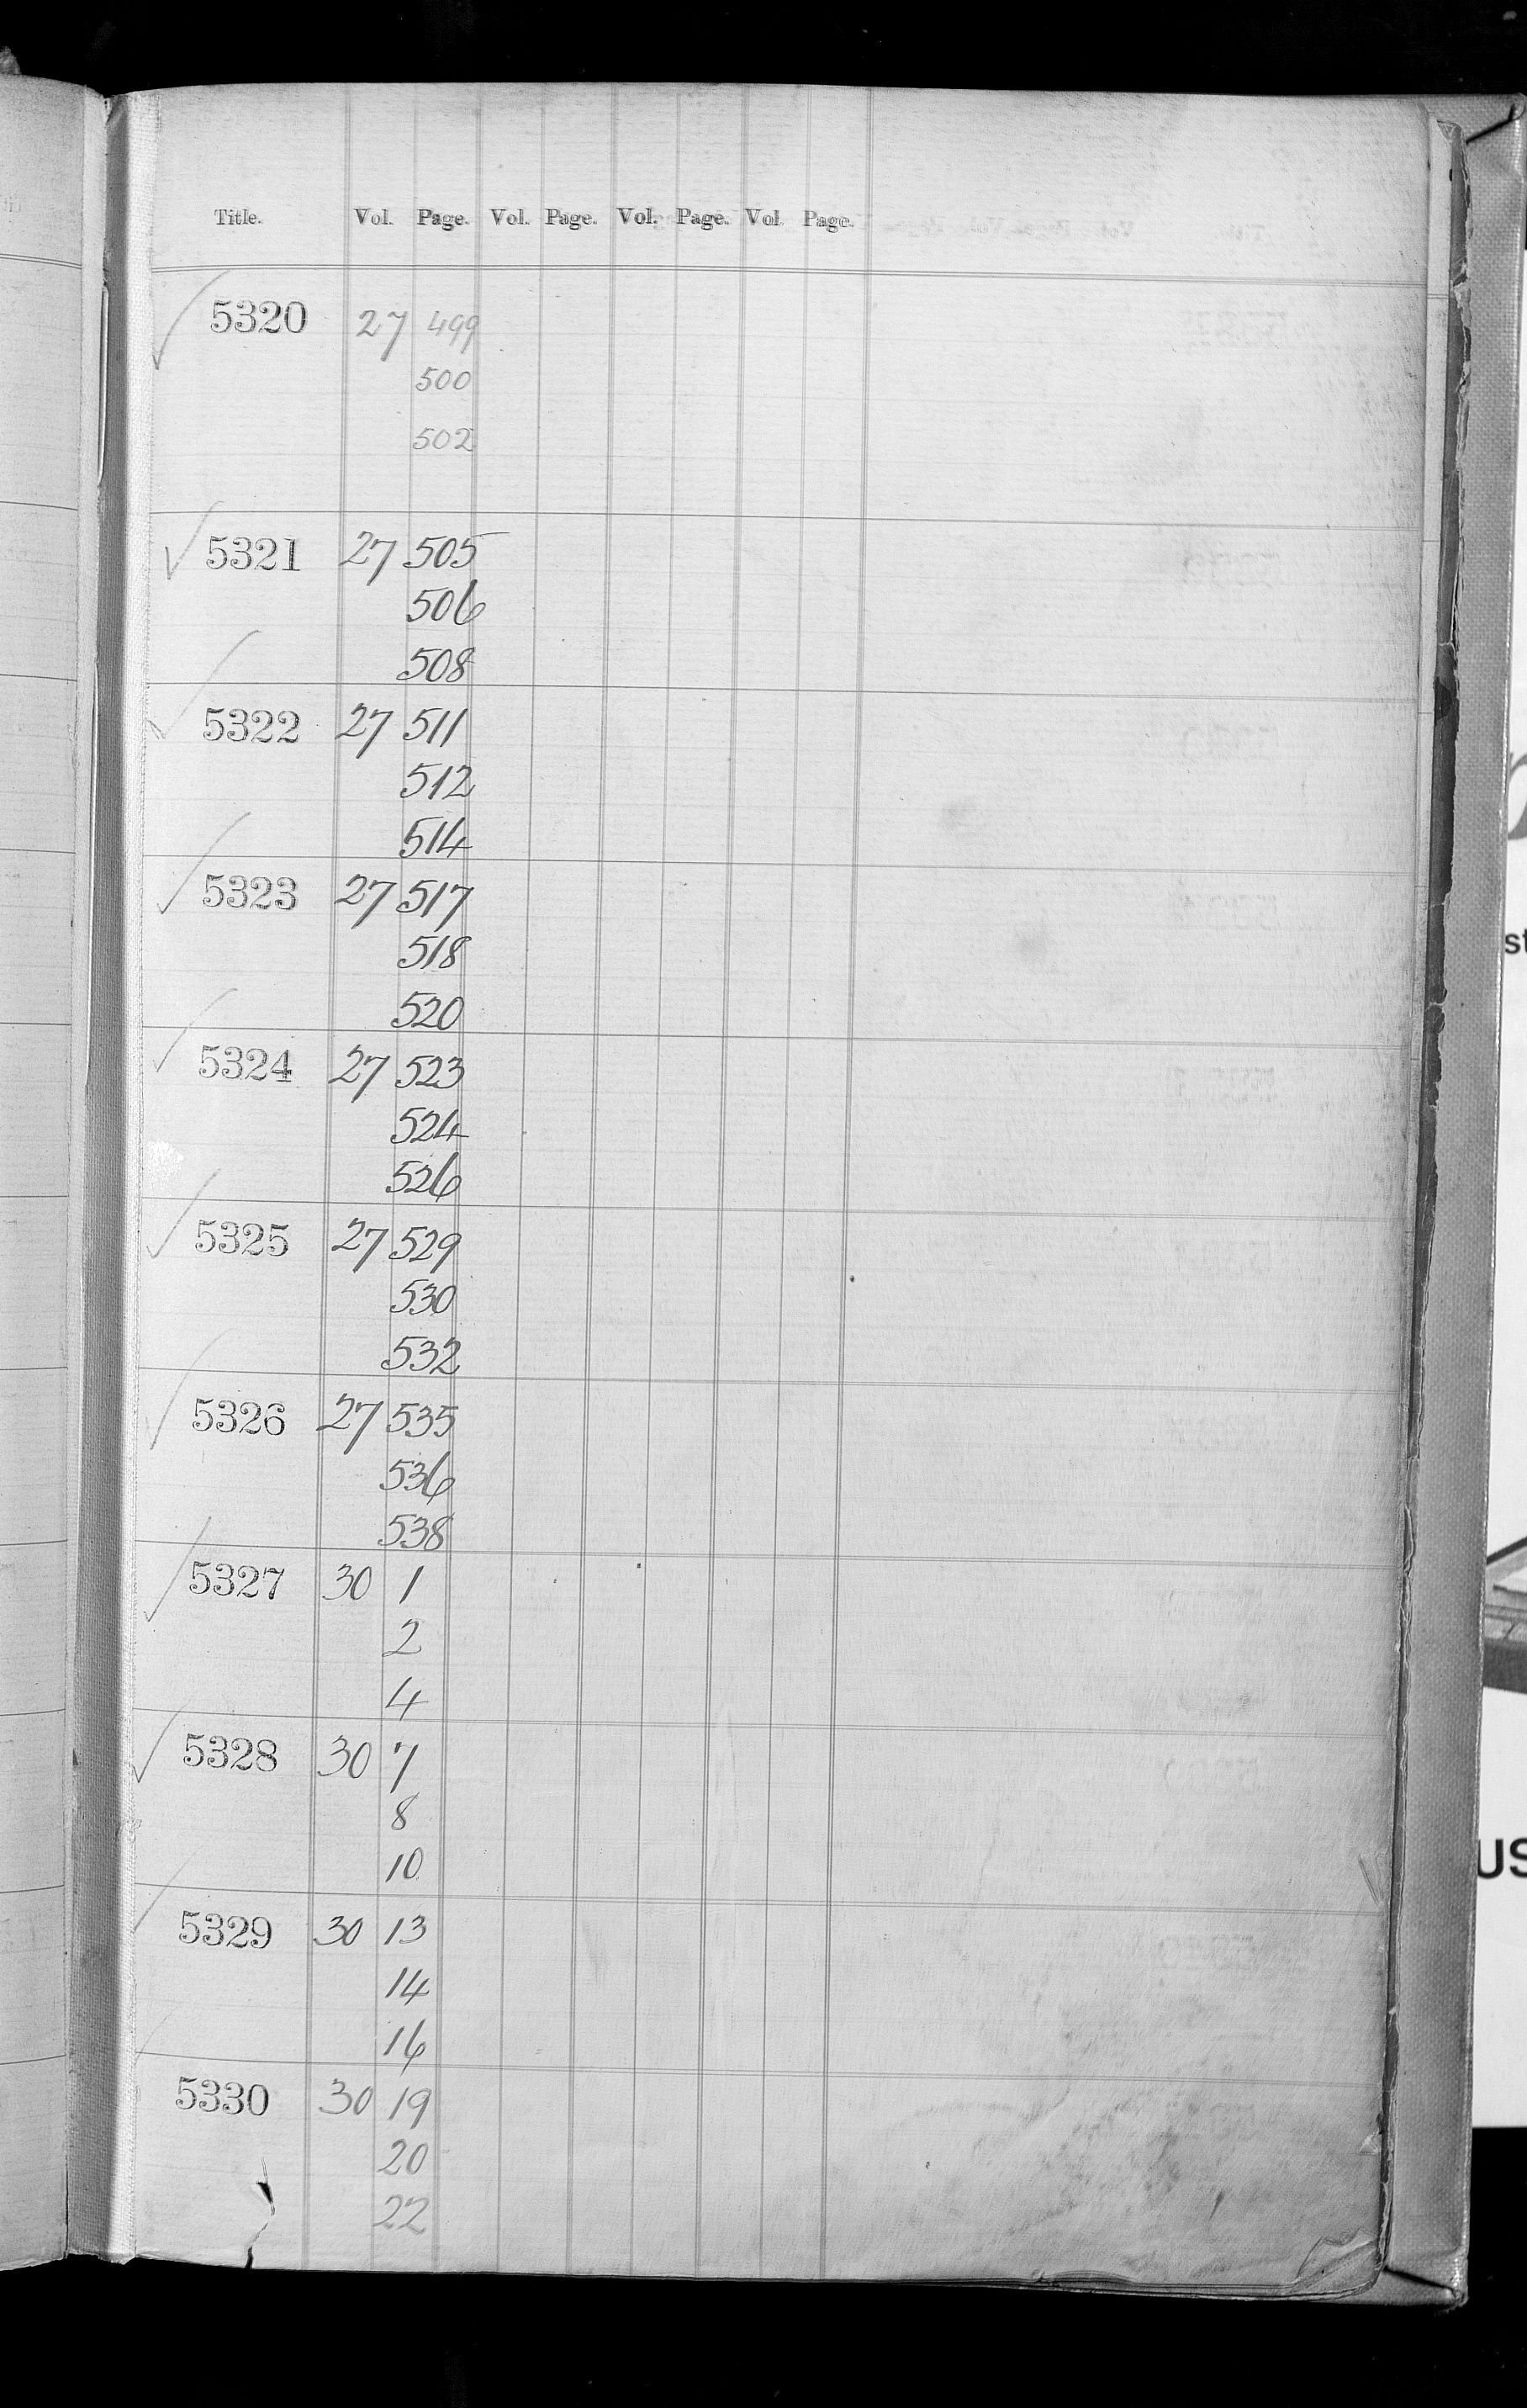 Title. Vol. Page. Vol. Page. Vol. Page. Vol Page.
5320 27 499
500
502
5321 27 505
506
508
5322 27 511
512
514
5323 27 517
518
520
5324 27 523
524
526
5325 27 529
530
532
5326 27 535
536
538
5327 30 1
2
4
5328 30 7
8
10
5329 30 13
14
16
5330 30 19
20
22